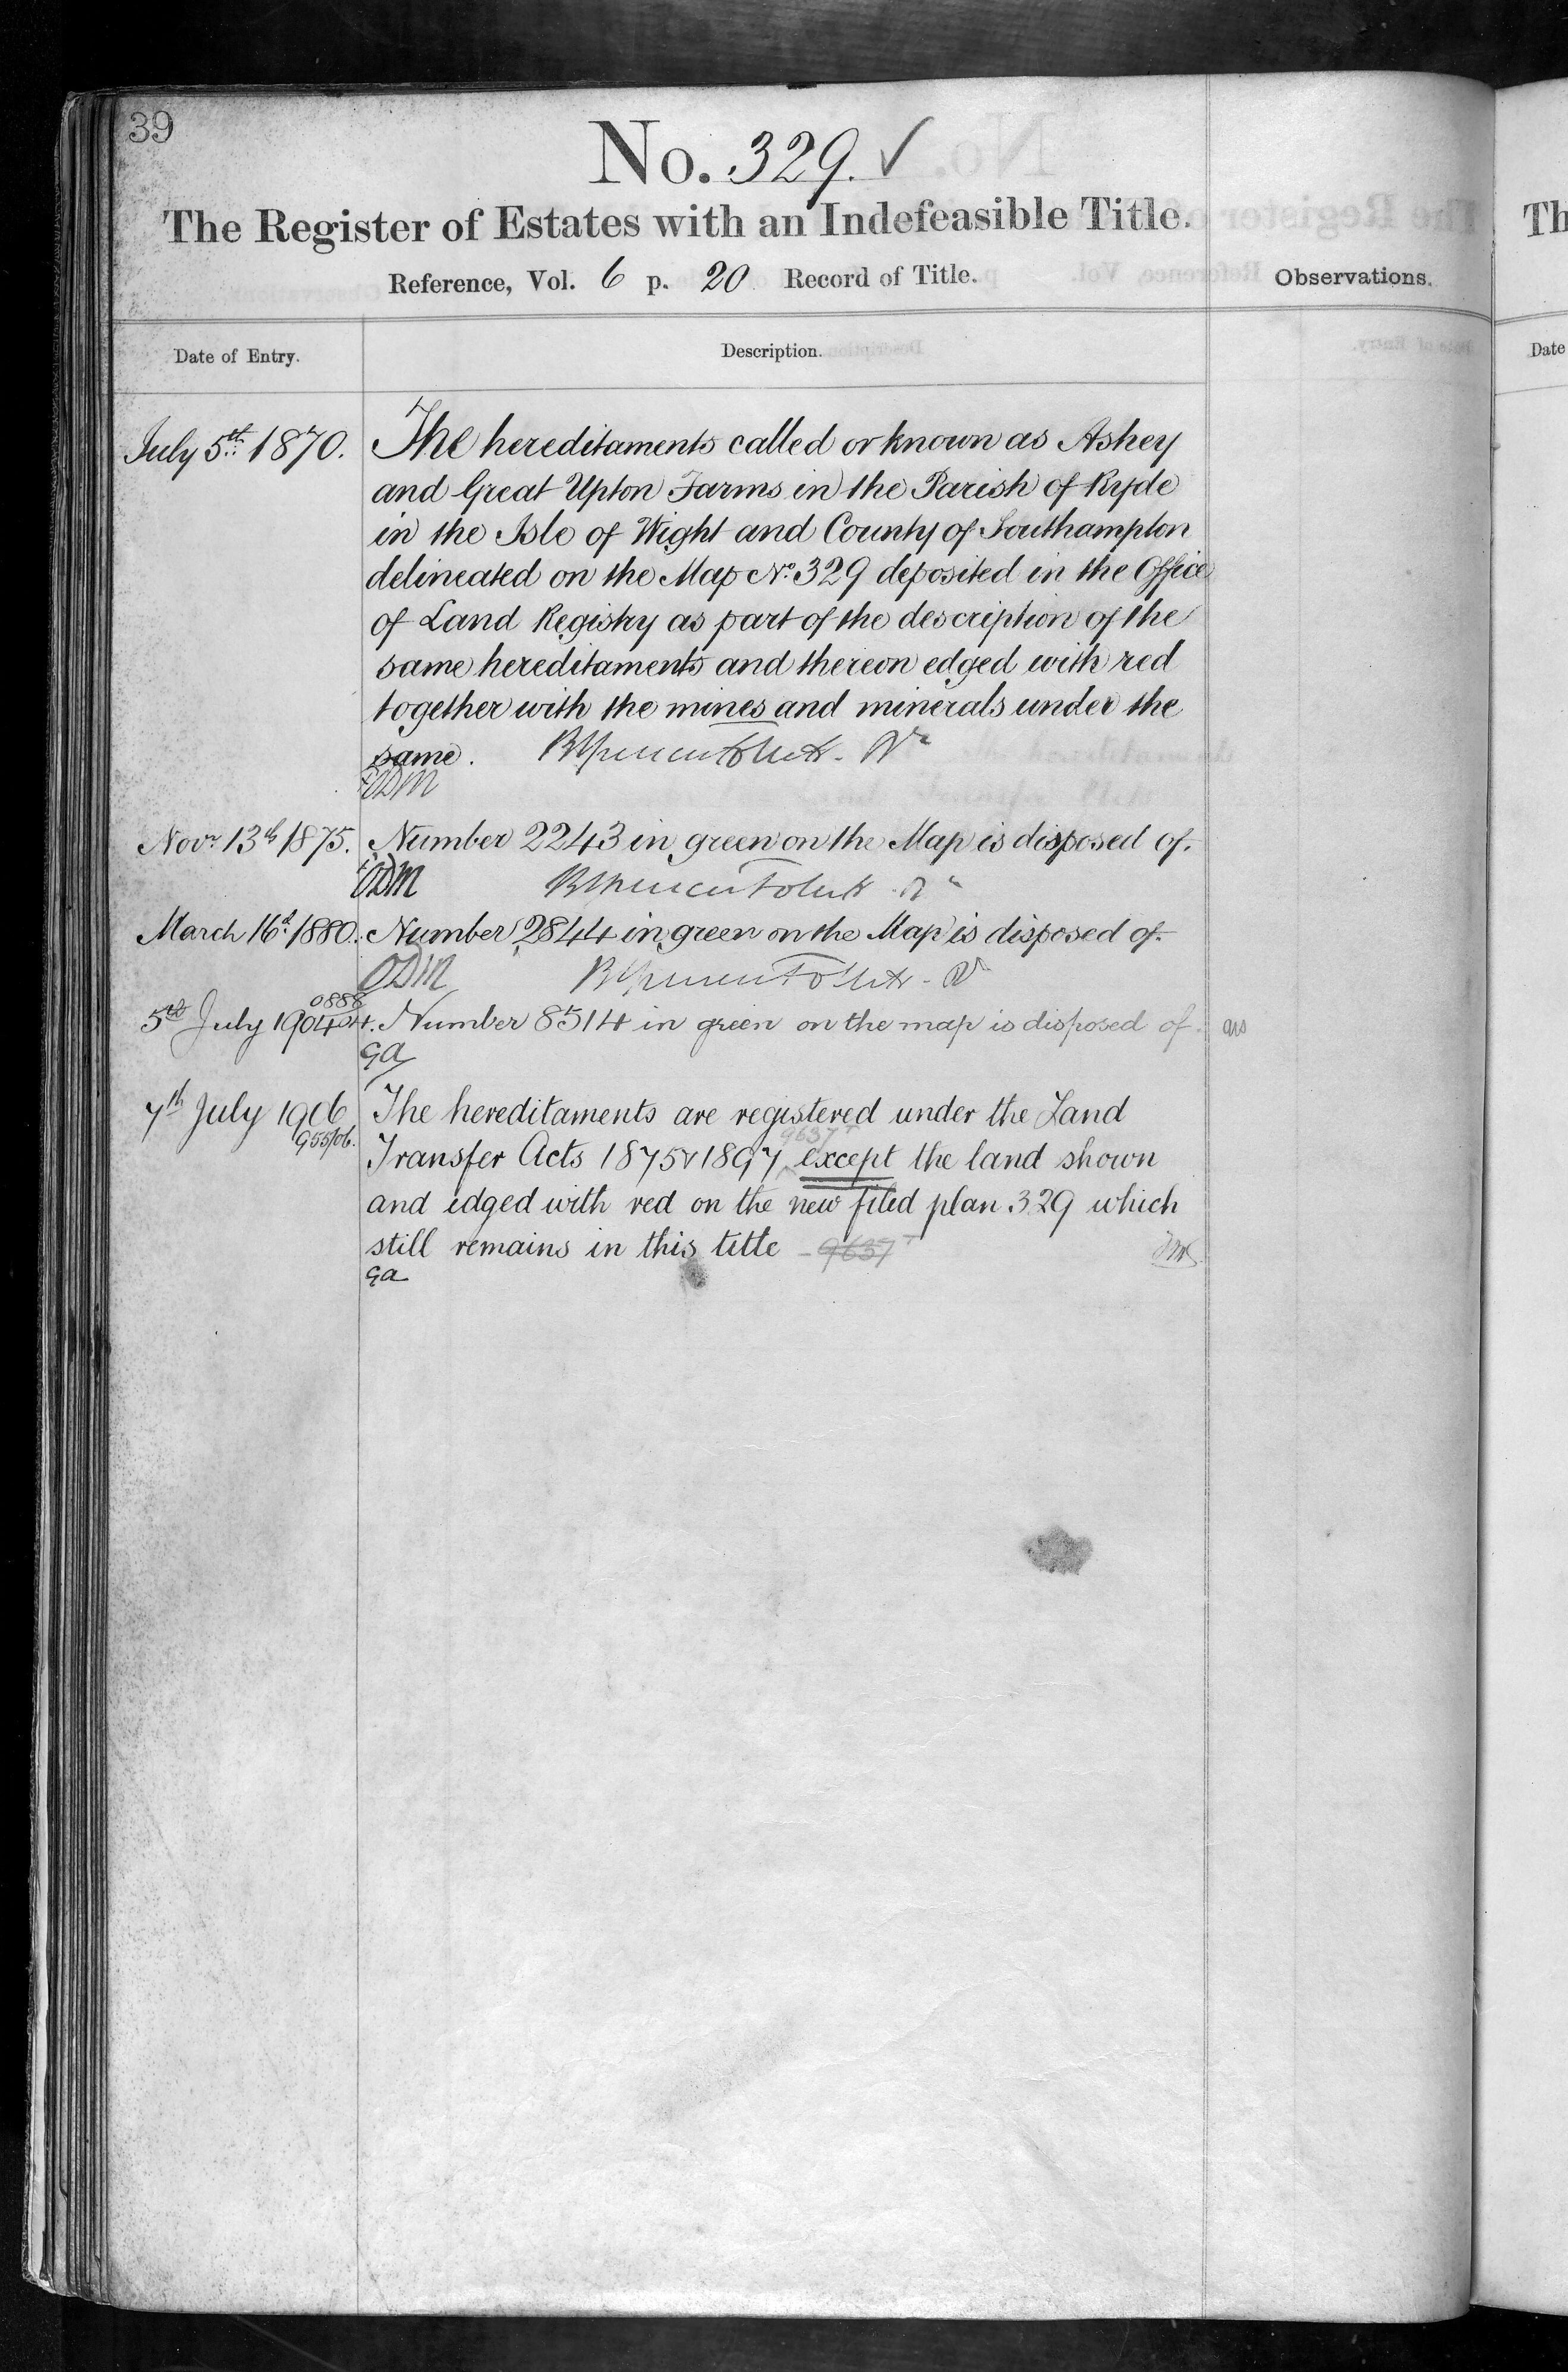 39
No. 329. ✓
The Register of Estates with an Indefeasible Title.
Reference, Vol. 6 p. 20 Record of Title.
Observations.
Date of Entry.
Description.
July 5th 1870.
The hereditaments called or known as Ashey
and Great Upton Farms in the Parish of Ryde
in the Isle of Wight and County of Southampton
delineated on the Map No. 329 deposited in the Office
of Land Registry as part of the description of the
same hereditaments and thereon edged with red
together with the mines and minerals under the
same.
ODM
Novr. 13th 1875. Number 2243 in green on the Map is disposed of.
ODM
March 16th 1880. Number 2844 in green on the Map is disposed of.
ODM
0888
5th July 1904 Number 8514 in green on the map is disposed of.
ga
7th July 1906 The hereditaments are registered under the Land
955/06.
9637
Transfer Acts 1875 & 1897 except the land shown
and edged with red on the new filed plan 329 which
still remains in this title 9637
ga
Th
Date